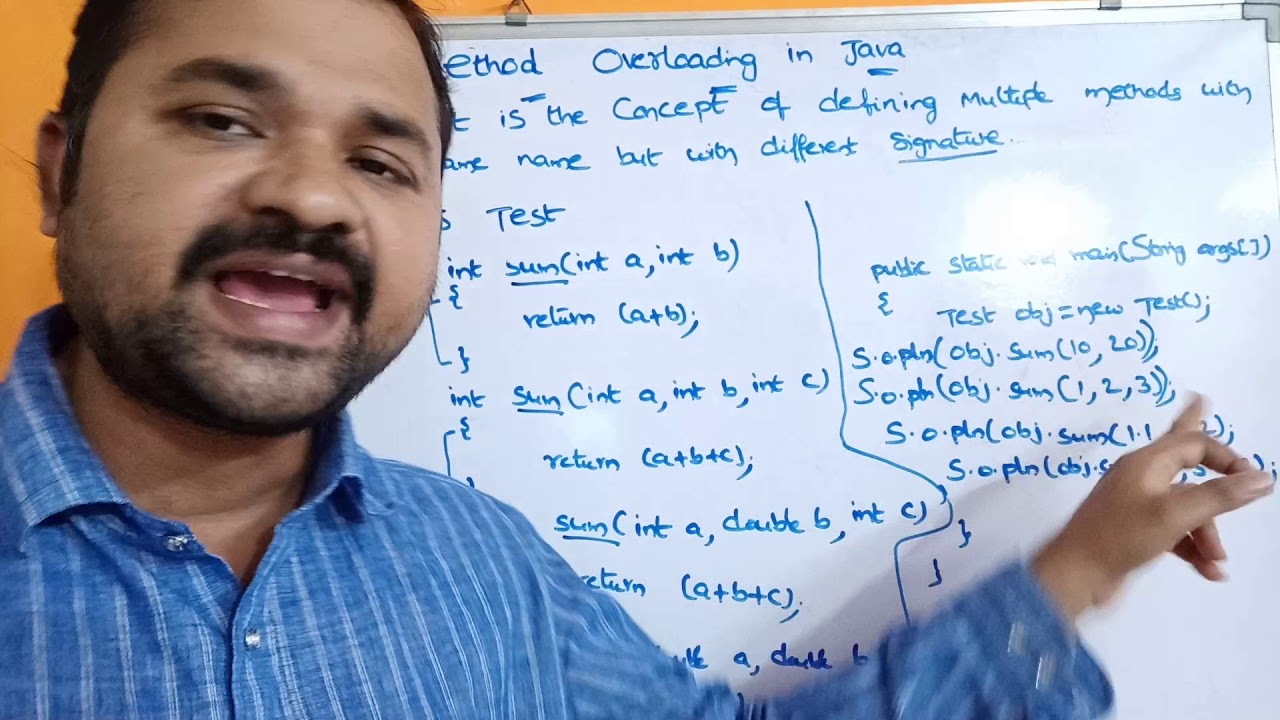 ethod Overloading in Java
is the concept of defining Multiple methods with
ame name but with different signature.
s Test
int sum(int a, int b)
{
return (a+b);
}
int sum(int a, int b, int c)
{
return (a+b+c);
sum(int a, double b, int c)
return (a+b+c);
a, double b
public static void main(String args[])
{
Test obj=new Test();
S.o.pln(obj.sum(10, 20));
S.o.pln(obj.sum(1, 2, 3));
S.o.pln(obj.sum(1.1 2);
S.o.pln(obj.s );
}
}